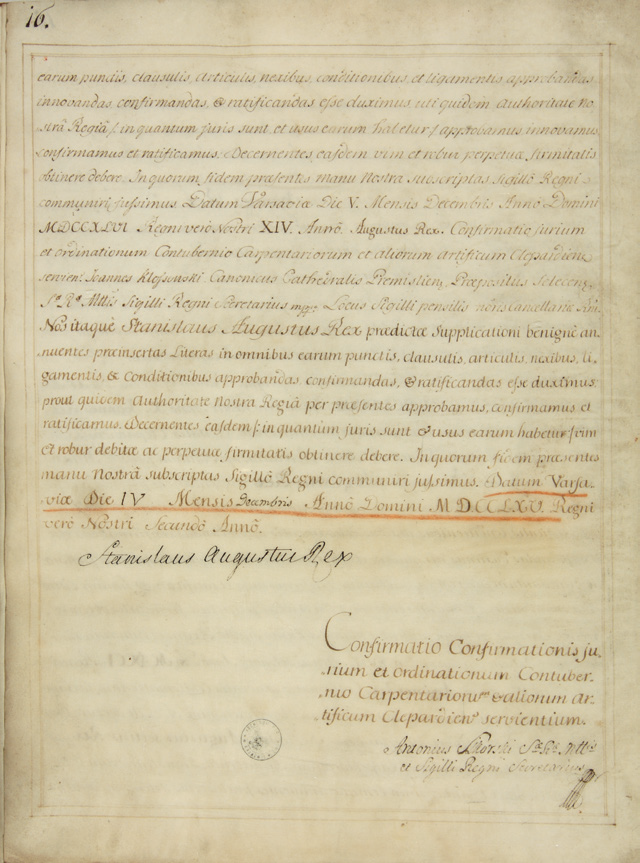 16.
earum punctis, clausulis, Articulis, nexibus, conditionibus, et ligamentis approbandas
innovandas, confirmandas, & ratificandas esse duximus uti quidem Authoritate No
strâ Regiâ /: in quantum juris sunt, et usus earum habetur :/ approbamus, innovamus,
confirmamus et ratificamus. Decernentes, easdem vim et robur perpetuæ firmitatis
obtinere debere. In quorum fidem præsentes manu Nostra subscriptas Sigillô Regni
communiri jussimus. Datum Varsaviæ Die V. Mensis Decembris Annô Domini
MDCCXLVI Regni verò Nostri XIV. Annô. Augustus Rex. Confirmatio jurium
et ordinationum Contubernio Carpentariorum et aliorum Artificum Clepardiens
servien: Joannes Canonicus Cathedralis Premislien: Præpositus
Sigilli Regni Secretarius mppr Locus Sigilli pensilis
Nos itaque Stanislaus Augustus Rex prædictæ Supplicationi benignè an-
nuentes præinsertas Literas in omnibus earum punctis, clausulis, articulis, nexibus, li-
gamentis, & Conditionibus approbandas confirmandas, & ratificandas esse duximus
prout quidem Authoritate Nostra Regiâ per præsentes approbamus, confirmamus et
ratificamus. Decernentes easdem /: in quantum juris sunt & usus earum habetur :/ vim
et robur debitæ ac perpetuæ firmitatis obtinere debere. In quorum fidem præsentes
manu Nostrâ subscriptas Sigillô Regni communiri jussimus. Datum Varsa-
viæ Die IV Mensis Decembris Annô Domini MDCCLXV. Regni
verò Nostri Secundô Annô.
Stanislaus Augustus Rex
Confirmatio Confirmationis ju-
rium et ordinationum Contuber-
nio Carpentariorum & aliorum Ar-
tificum Clepardien: servientium.
Antonius Sikorski
et Sigilli Regni Secretarius